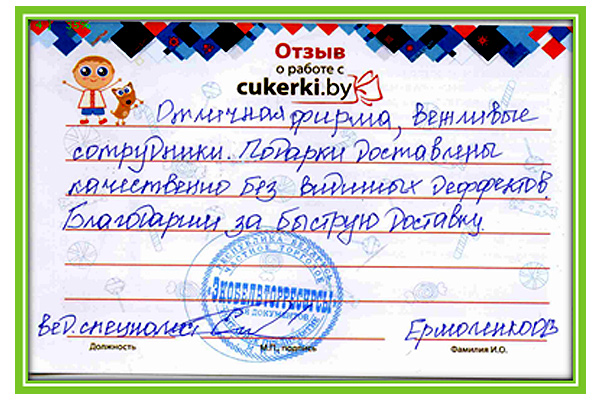 Отзыв
о работе с
cukerki.by
Отличная фирма, вежливые
сотрудники. Подарки доставлены
качественно без видимых деффектов.
Благодарим за быструю доставку.
РЕСПУБЛИКА БЕЛАРУСЬ
ЧАСТНОЕ ТОРГОВОЕ
"ЭКОБЕЛВТОРРЕСУРСЫ"
ДОКУМЕНТОВ
Вед. специалист
Ермоленко ОВ
Должность
М.П., подпись
Фамилия И.О.